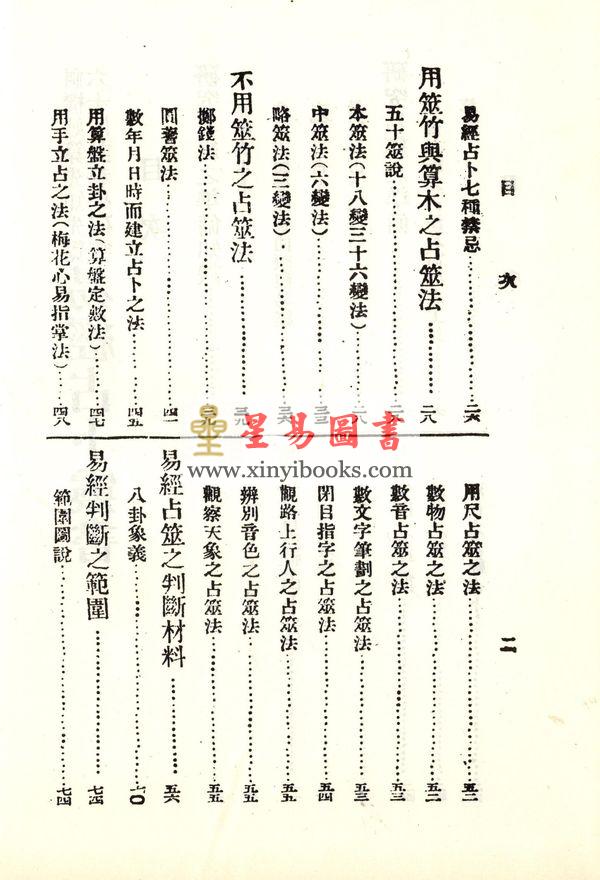 目次
易經占卜七種禁忌…………二六
用筮竹與算木之占筮法…………二八
五十筮說…………二八
本筮法(十八變三十六變法)…………二八
中筮法(六變法)…………三三
略筮法(三變法)…………三六
不用筮竹之占筮法…………三九
擲錢法…………三九
圓蓍筮法…………四一
數年月日時而建立占卜之法…………四五
用算盤立卦之法(算盤定數法)…………四七
用手立占之法(梅花心易指掌法)…………四八
二
用尺占筮之法…………五二
數物占筮之法…………五二
數音占筮之法…………五三
數文字筆劃之占筮法…………五三
閉目指字之占筮法…………五四
觀路上行人之占筮法…………五五
辨別音色之占筮法…………五五
觀察天象之占筮法…………五五
易經占筮之判斷材料…………五六
八卦象義…………六〇
易經判斷之範圍…………七四
範圍圖說…………七四
星易圖書
www.xinyibooks.com